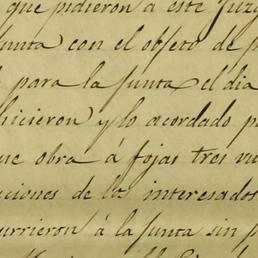 que pidieron á este Juzg
Junta con el objeto de p
para la Junta el dia
hicieron y lo acordado p
ue obra á fojas tres vu
ciones de los interesados
urrieron á la Junta sin p